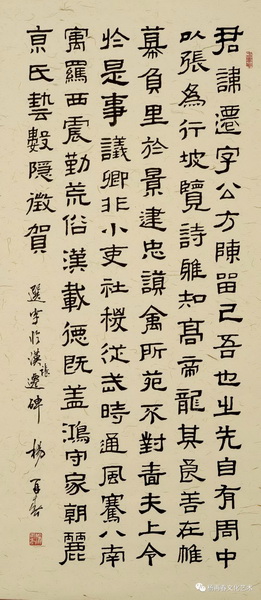 君諱遷字公方陳留己吾也之先自有周中
以張為行坡覽詩雅知高帝龍其良善在帷
幕負里於景建忠謨禽所苑不對嗇夫上令
於是事議卿非小吏社稷從武時通風騫八南
寓羅西震勤荒俗漢載德既蓋鴻守家朝麗
京氏藝數隱徵賀
選字於漢張遷碑 楊再春
杨再春文化艺术